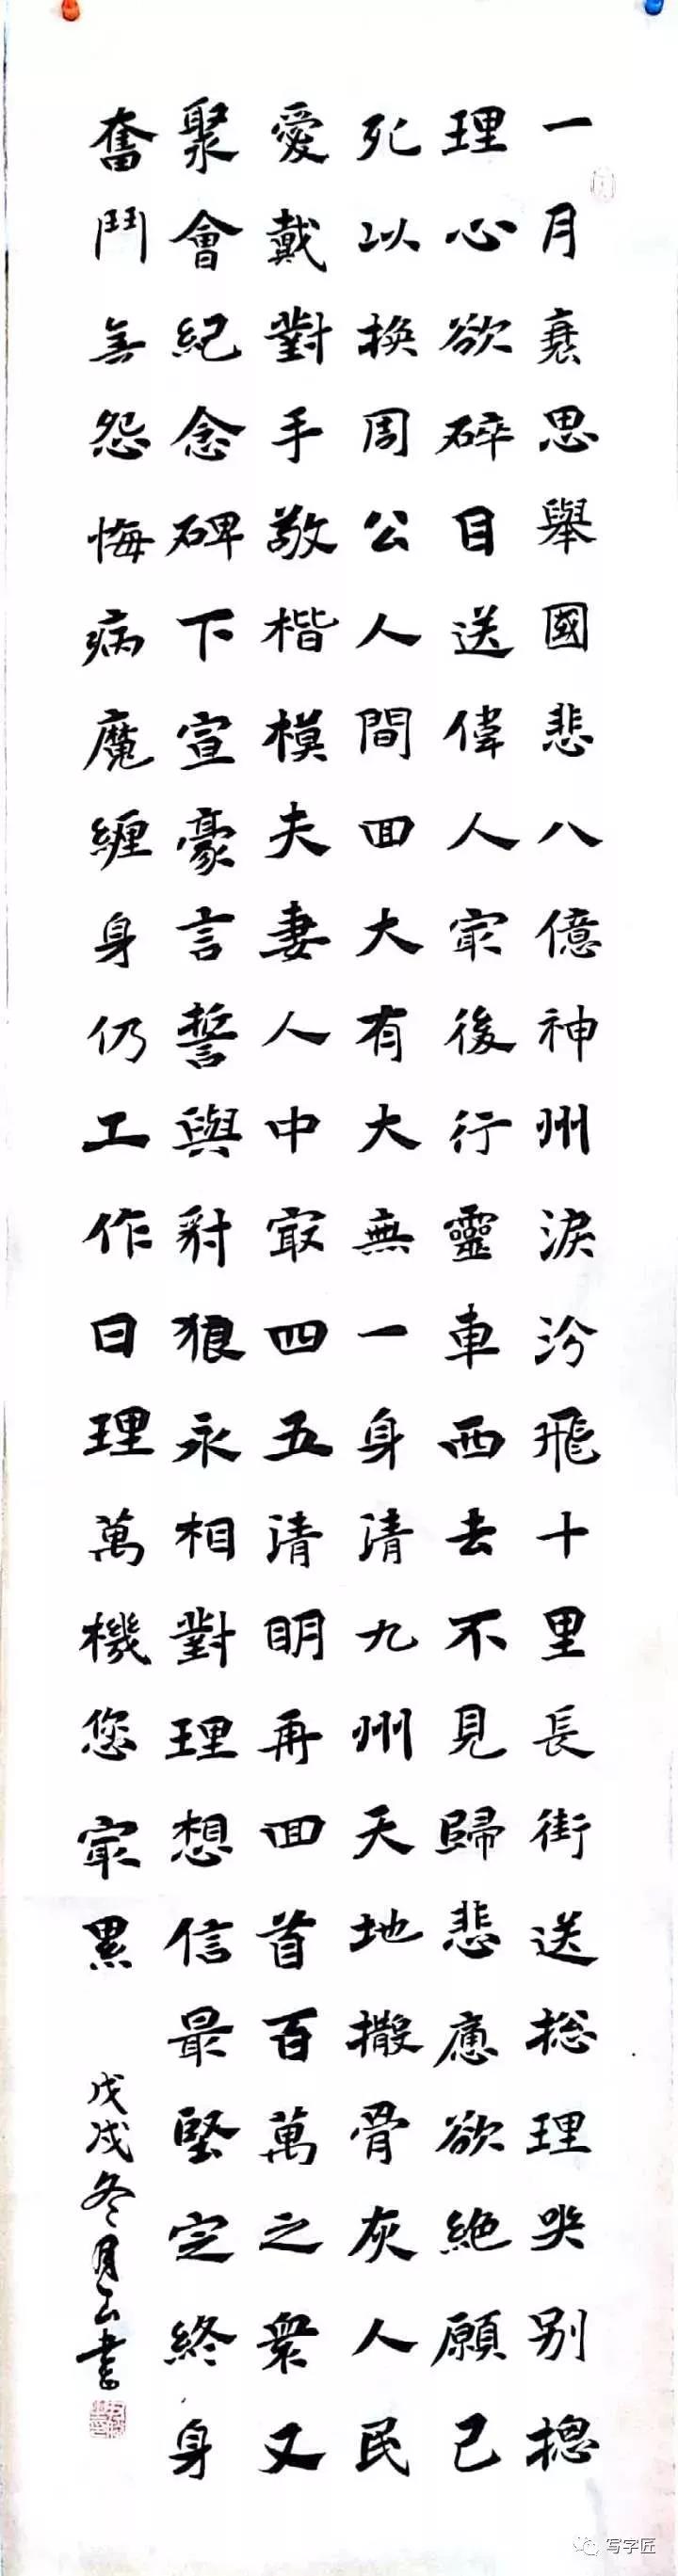 一月哀思舉國悲八億神州淚汾飛十里長街送総理哭别摠
理心欲碎目送偉人冣後行靈車西去不見歸悲慟欲絶願己
死以换周公人間回大有大無一身清九州天地撒骨灰人民
愛戴對手敬楷模夫妻人中冣四五清明再回首百萬之衆又
聚會紀念碑下宣豪言誓與豺狼永相對理想信最堅定終身
奮鬥無怨悔病魔纏身仍工作日理萬機您冣累
戊戌冬月云書
写字匠